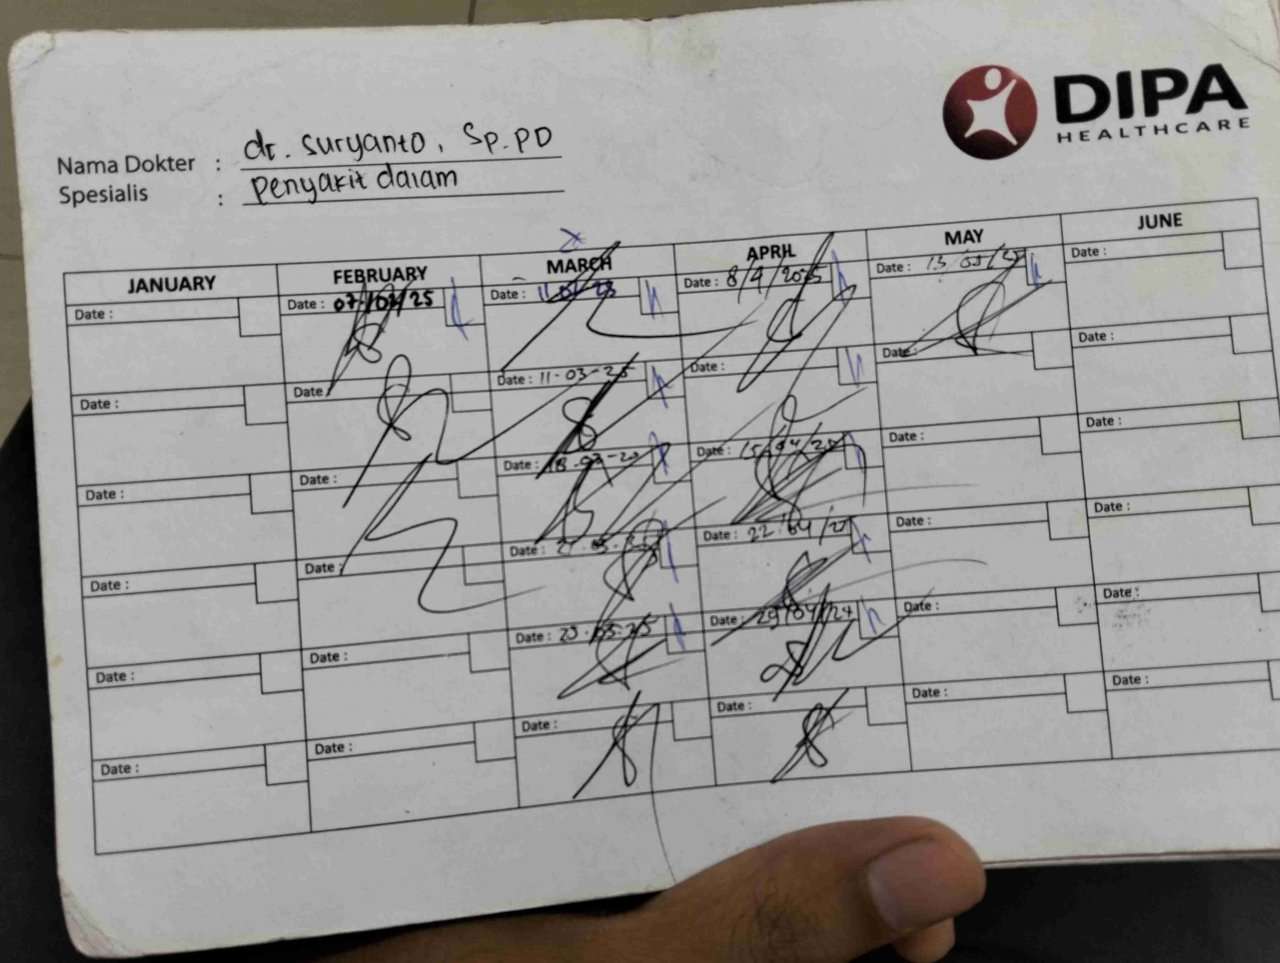 DIPA
HEALTHCARE
Nama Dokter : dr. Suryanto, Sp.PD
Spesialis : Penyakit dalam
JANUARY FEBRUARY MARCH APRIL MAY JUNE
Date : Date : 07/02/25 Date : Date : 8/4/2025 Date : 13/05/25 Date :
Date : Date : Date : 11-03-25 Date : Date : Date :
Date : Date : Date : 18-03-25 Date : 15/04/25 Date : Date :
Date : Date : Date : Date : 22/04/25 Date : Date :
Date : Date : Date : Date : 29/04/24 Date : Date :
Date : Date : Date : Date : Date : Date :